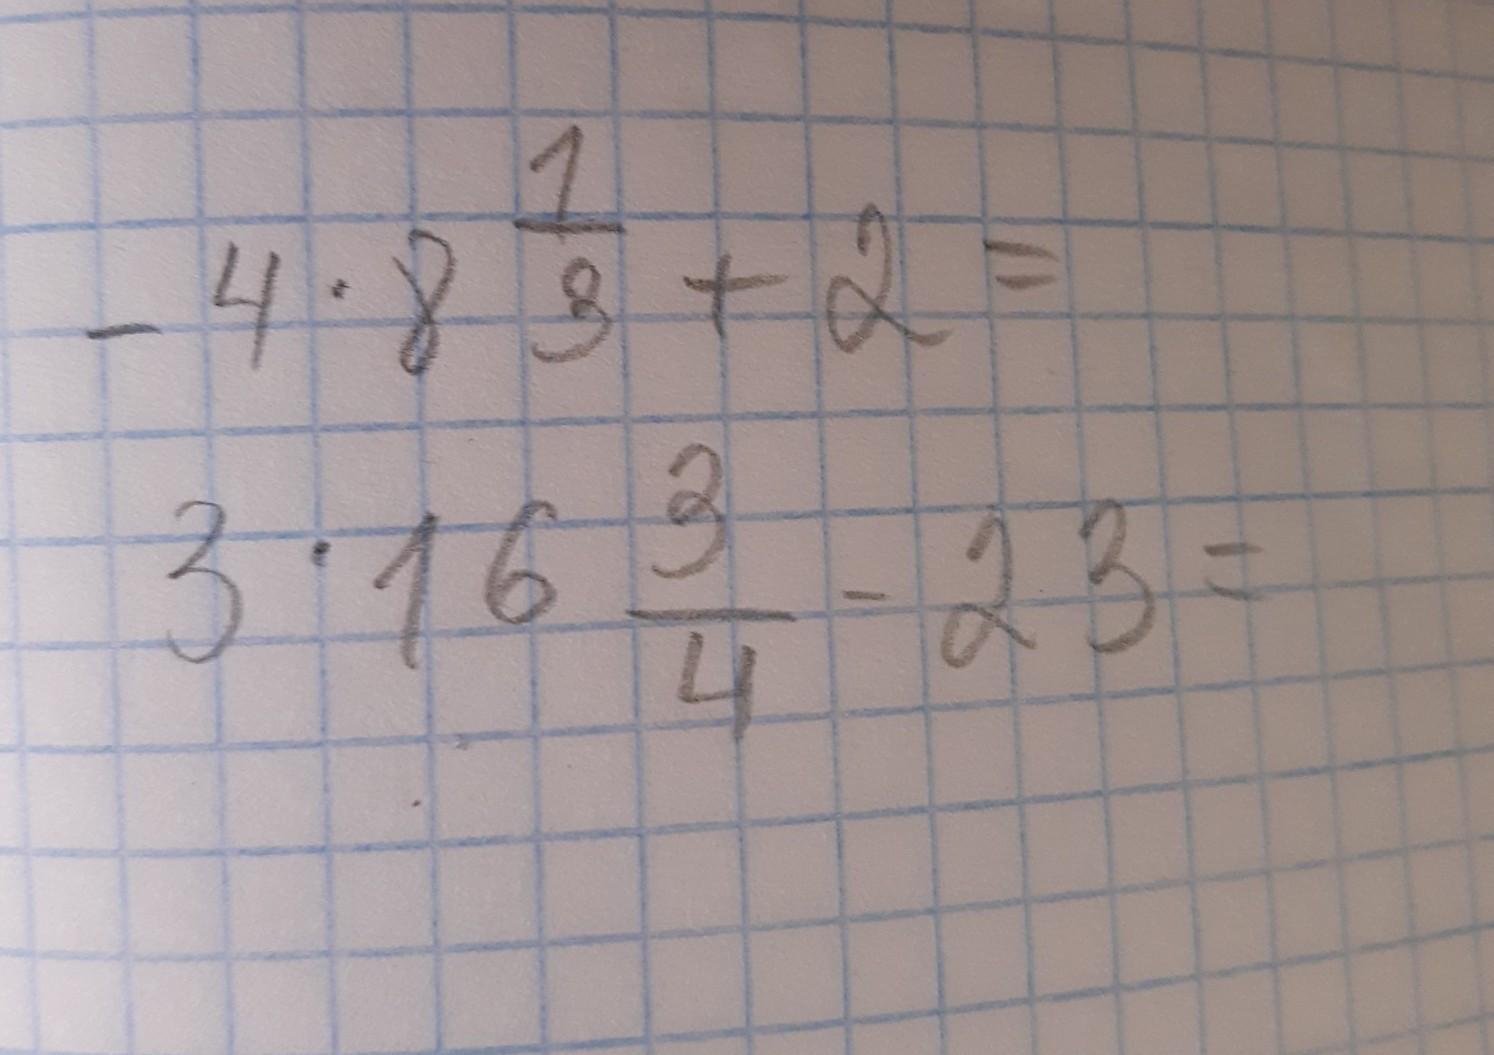 -4·8 1/3 + 2 =
3·16 3/4 - 23 =